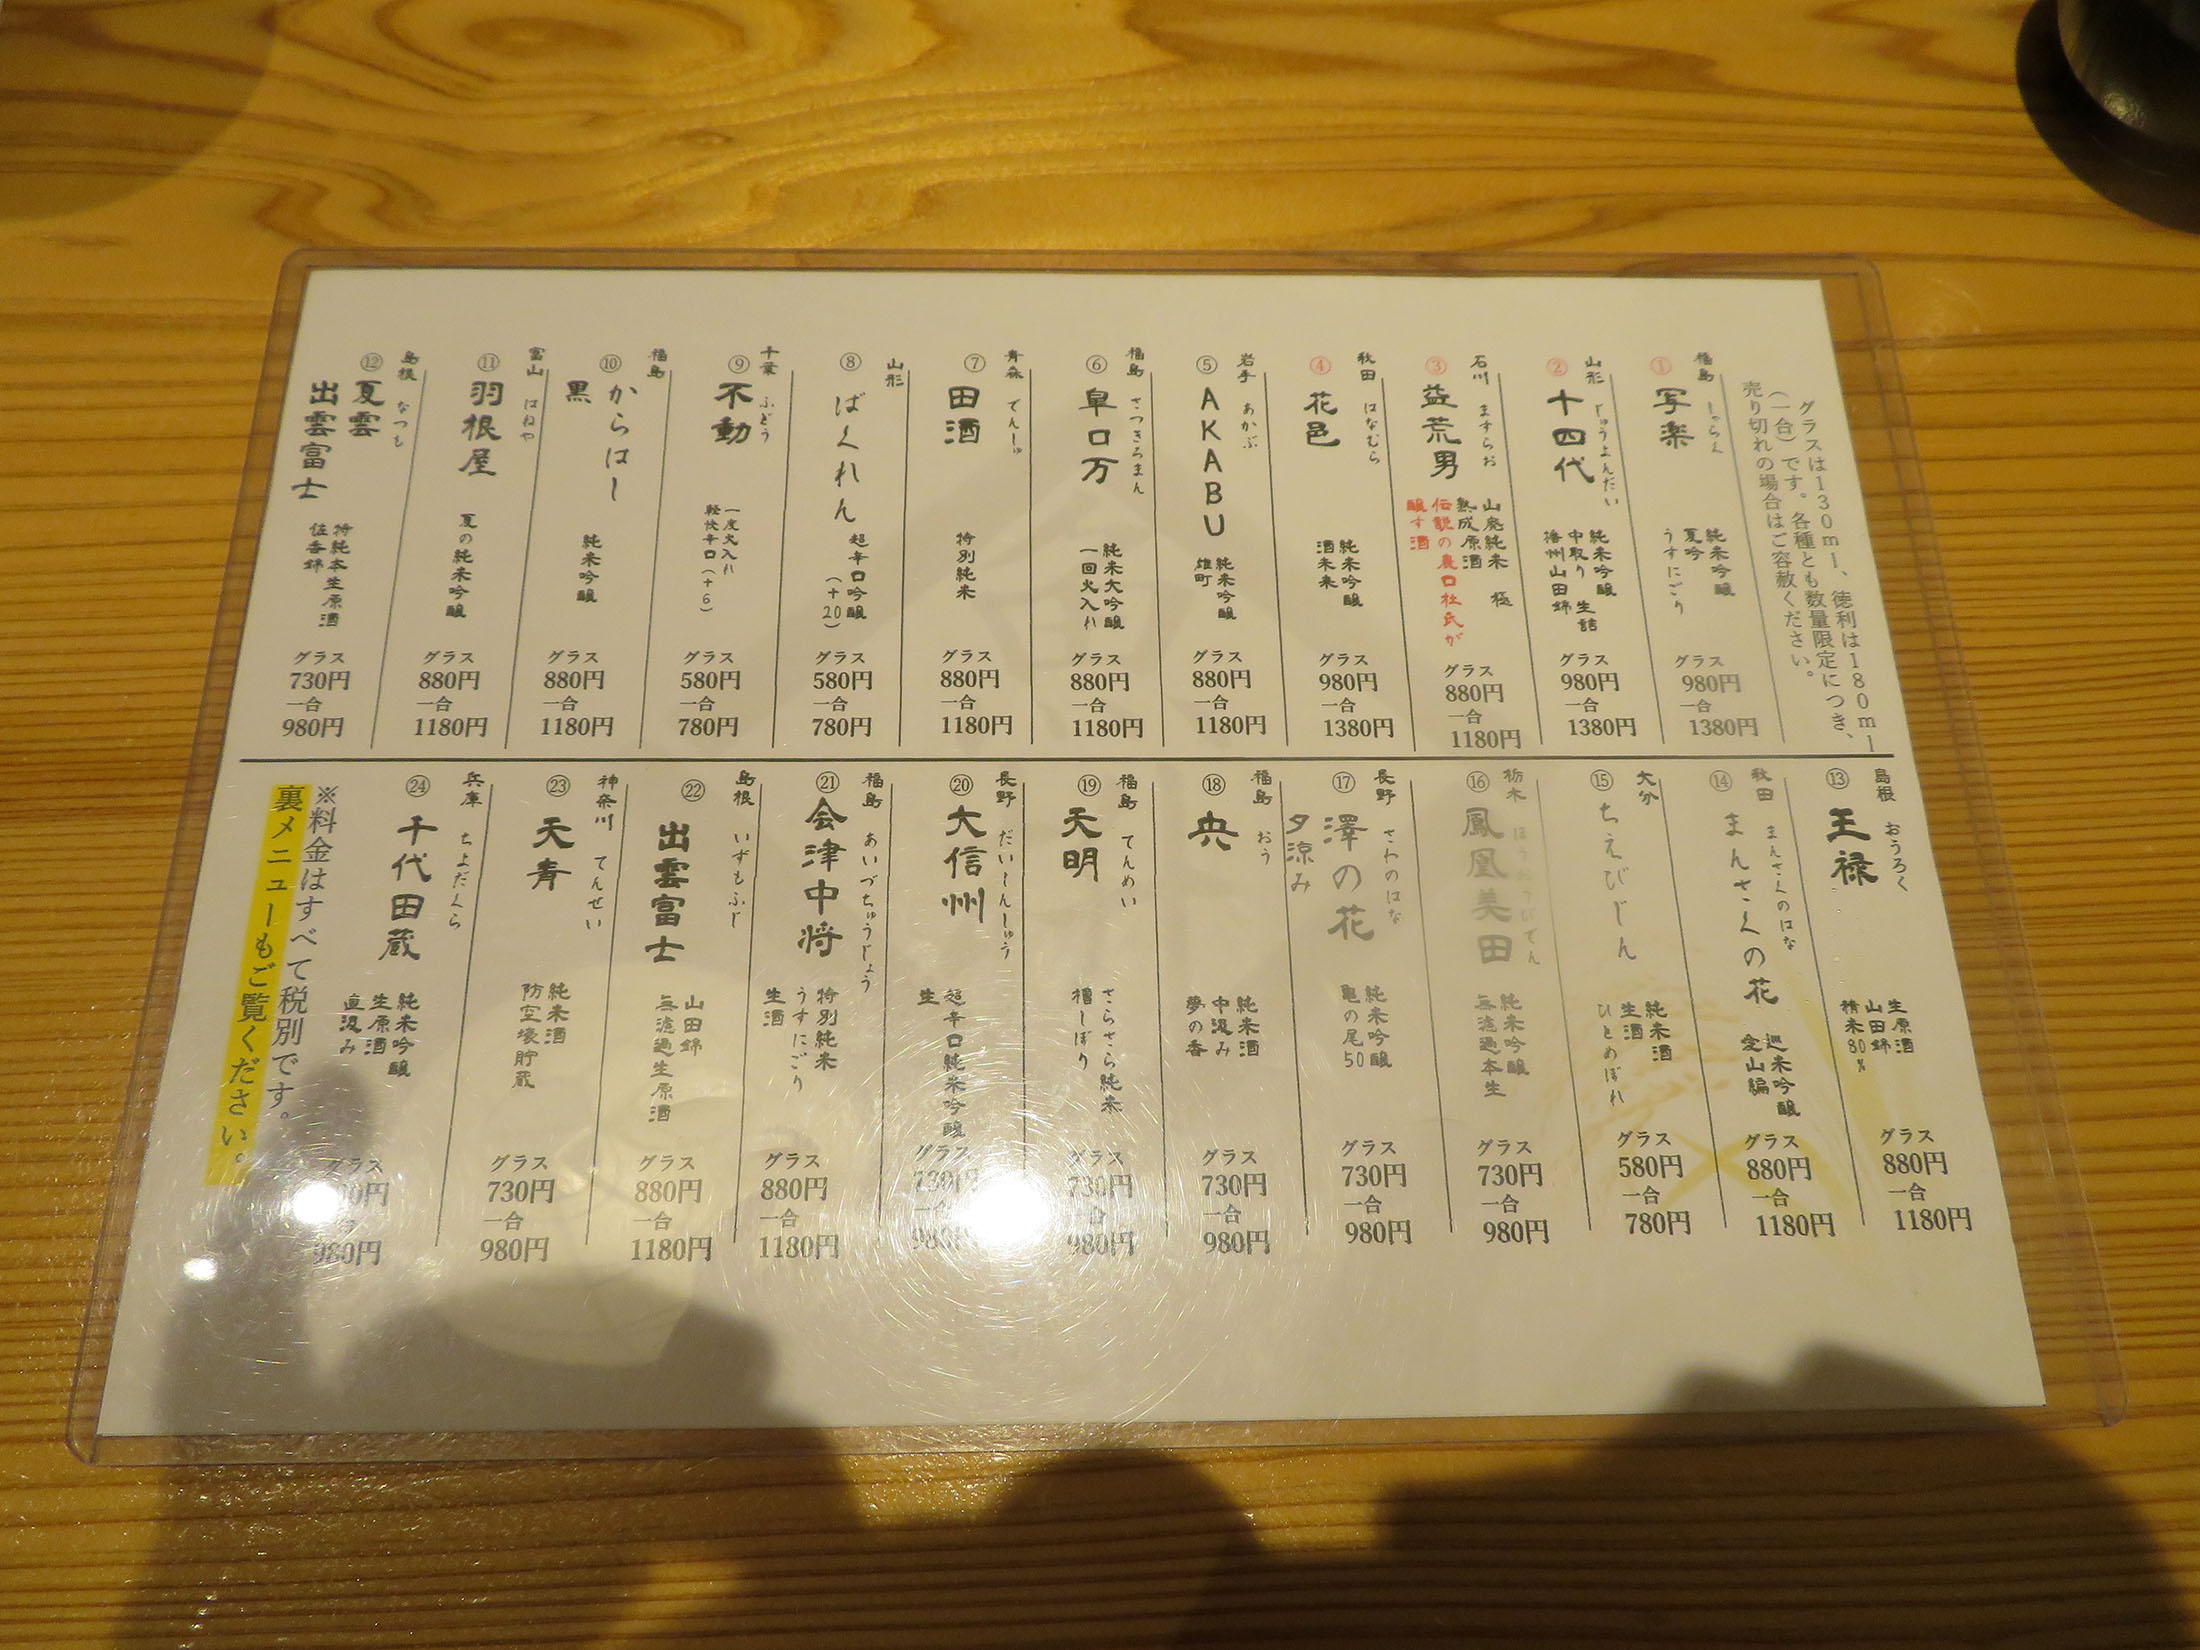 グラスは130ml、徳利は180ml
(一合)です。各種とも数量限定につき、
売り切れの場合はご容赦ください。
福島 しゃらく
① 写楽
純米吟醸
夏吟
うすにごり
グラス
980円
一合
1380円
山形 じゅうよんだい
② 十四代
純米吟醸
中取り 生詰
播州山田錦
グラス
980円
一合
1380円
石川 ますらお
③ 益荒男
山廃純米 極
熟成原酒
伝説の農口杜氏が
醸す酒
グラス
880円
一合
1180円
秋田 はなむら
④ 花邑
純米吟醸
酒未来
グラス
980円
一合
1380円
岩手 あかぶ
⑤ AKABU
純米吟醸
雄町
グラス
880円
一合
1180円
福島 さつきろまん
⑥ 皐ロ万
純米大吟醸
一回火入れ
グラス
880円
一合
1180円
青森 でんしゅ
⑦ 田酒
特別純米
グラス
880円
一合
1180円
山形
⑧ ばくれん
超辛口吟醸
(+20)
グラス
580円
一合
780円
千葉 ふどう
⑨ 不動
一度火入れ
軽快辛口(+6)
グラス
580円
一合
780円
福島
⑩ からはし
黒
純米吟醸
グラス
880円
一合
1180円
富山 はねや
⑪ 羽根屋
夏の純米吟醸
グラス
880円
一合
1180円
島根 なつも
⑫ 夏雲
出雲富士
特純本生原酒
佐香錦
グラス
730円
一合
980円
島根 おうろく
⑬ 王祿
生原酒
山田錦
精米80%
グラス
880円
一合
1180円
秋田 まんさくのはな
⑭ まんさくの花
巡米吟醸
愛山編
グラス
880円
一合
1180円
大分
⑮ ちえびじん
純米酒
生酒
ひとめぼれ
グラス
580円
一合
780円
栃木 ほうおうびでん
⑯ 鳳凰美田
純米吟醸
無濾過本生
グラス
730円
一合
980円
長野 さわのはな
⑰ 澤の花
夕涼み
純米吟醸
亀の尾50
グラス
730円
一合
980円
福島 おう
⑱ 央
純米酒
中汲み
夢の香
グラス
730円
一合
980円
福島 てんめい
⑲ 天明
さらさら純米
槽しぼり
グラス
730円
一合
980円
長野 だいしんしゅう
⑳ 大信州
超辛口純米吟醸
生
グラス
730円
一合
980円
福島 あいづちゅうじょう
㉑ 会津中将
特別純米
うすにごり
生酒
グラス
880円
一合
1180円
島根 いずもふじ
㉒ 出雲富士
山田錦
無濾過生原酒
グラス
880円
一合
1180円
神奈川 てんせい
㉓ 天青
純米酒
防空壕貯蔵
グラス
730円
一合
980円
兵庫 ちよだくら
㉔ 千代田蔵
純米吟醸
生原酒
直汲み
グラス
一合
980円
※料金はすべて税別です。
裏メニューもご覧ください。